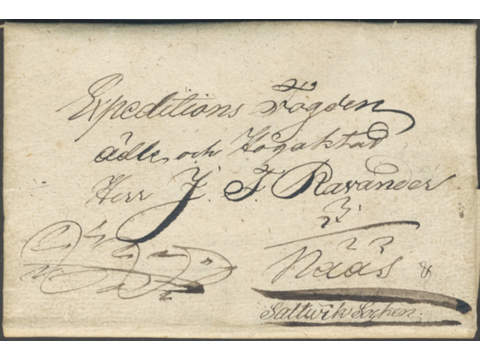 Expeditions Fogden
ädle och Högaktad
Herr J. F. Ravander
Näås
Saltwik Sochen